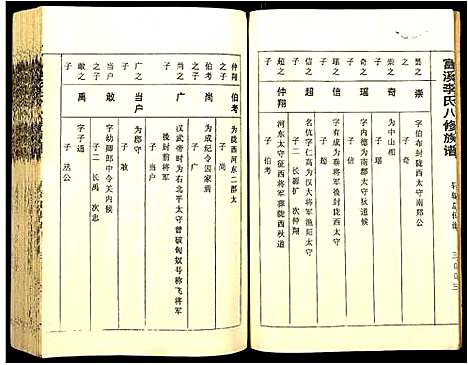 富溪李氏八修族谱
昙之子
崇
字伯布封陇西太守南郑公
子 奇
崇之子
奇
为中山相
子 瑶
奇之子
瑶
字内德为南郡太守狄道侯
子 信
瑶之子
信
字有成为秦将军後封陇西太守
子 超
信之子
超
字仁高为汉大将军渔阳太守
子二 次 仲翔
超之子
仲翔
河东太守征西将军葬陇西狄道
子 伯考
仲翔之子
伯考
为陇西河东二郡太
子 尚
伯考之子
尚
为成纪令因家焉
子 广
尚之子
广
汉武帝时为右北平太守曾破匈奴号称飞将军
後封前将军
子 当户
广之子
当户
为郡守
子 敢
当户之子
敢
字幼卿郎中令关内侯
子二 长禹 次忠
敢之子
禹
字子通
子 丞公